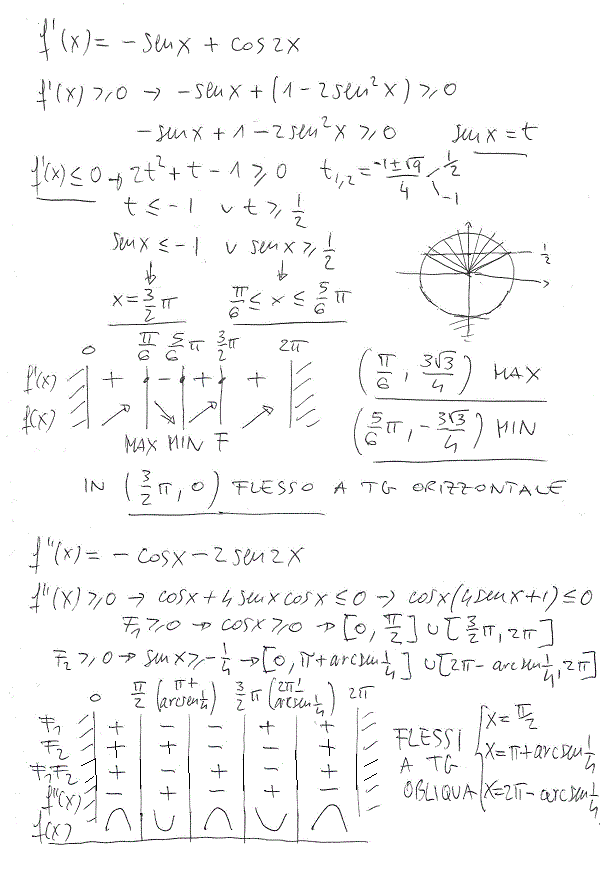 f'(x) = -senx + cos2x
f'(x) ≥ 0 → -senx + (1-2sen²x) ≥ 0
-senx + 1 - 2sen²x ≥ 0 senx = t
f'(x) ≤ 0 → 2t² + t - 1 ≥ 0 t₁,₂ = (-1±√9)/4 1/2 -1
t ≤ -1 ∪ t ≥ 1/2
senx ≤ -1 ∪ senx ≥ 1/2
↓ ↓
x = 3/2 π π/6 ≤ x ≤ 5/6 π
1/2
0 π/6 5/6 π 3/2 π 2π
f'(x) + - + +
f(x) ↗ ↘ ↗ ↗
MAX MIN F
(π/6, 3√3/4) MAX
(5/6 π, -3√3/4) MIN
IN (3/2 π, 0) FLESSO A TG ORIZZONTALE
f''(x) = -cosx - 2sen2x
f''(x) ≥ 0 → cosx + 4senxcosx ≤ 0 → cosx(4senx+1) ≤ 0
F₁ ≥ 0 → cosx ≥ 0 → [0, π/2] ∪ [3/2 π, 2π]
F₂ ≥ 0 → senx ≥ -1/4 → [0, π+arcsen 1/4] ∪ [2π - arcsen 1/4, 2π]
0 π/2 (π+arcsen 1/4) 3/2 π (2π-arcsen 1/4) 2π
F₁ + - - + +
F₂ + + - - +
F₁F₂ + - + - +
f''(x) - + - + -
f(x) ∩ ∪ ∩ ∪ ∩
FLESSI
A TG
OBLIQUA
x = π/2
x = π+arcsen 1/4
x = 2π-arcsen 1/4